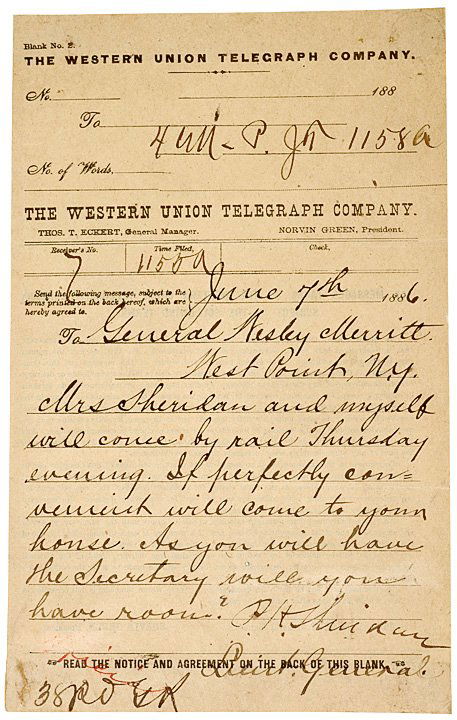 Blank No. 2.
THE WESTERN UNION TELEGRAPH COMPANY.
No. 188
To
P. Jn 1158a
No. of Words,
THE WESTERN UNION TELEGRAPH COMPANY.
THOS. T. ECKERT, General Manager. NORVIN GREEN, President.
Receiver's No. Time Filed, Check.
7 1155a
Send the following message, subject to the
terms printed on the back hereof, which are
hereby agreed to.
June 7th 1886.
To General Wesley Merritt.
West Point, N.y.
Mrs Sheridan and myself
will come by rail Thursday
evening. If perfectly con=
venient will come to your
house. As you will have
the Secretary will you
have room?
P. H. Sheridan
Lieut. General.
READ THE NOTICE AND AGREEMENT ON THE BACK OF THIS BLANK.
38 Pd